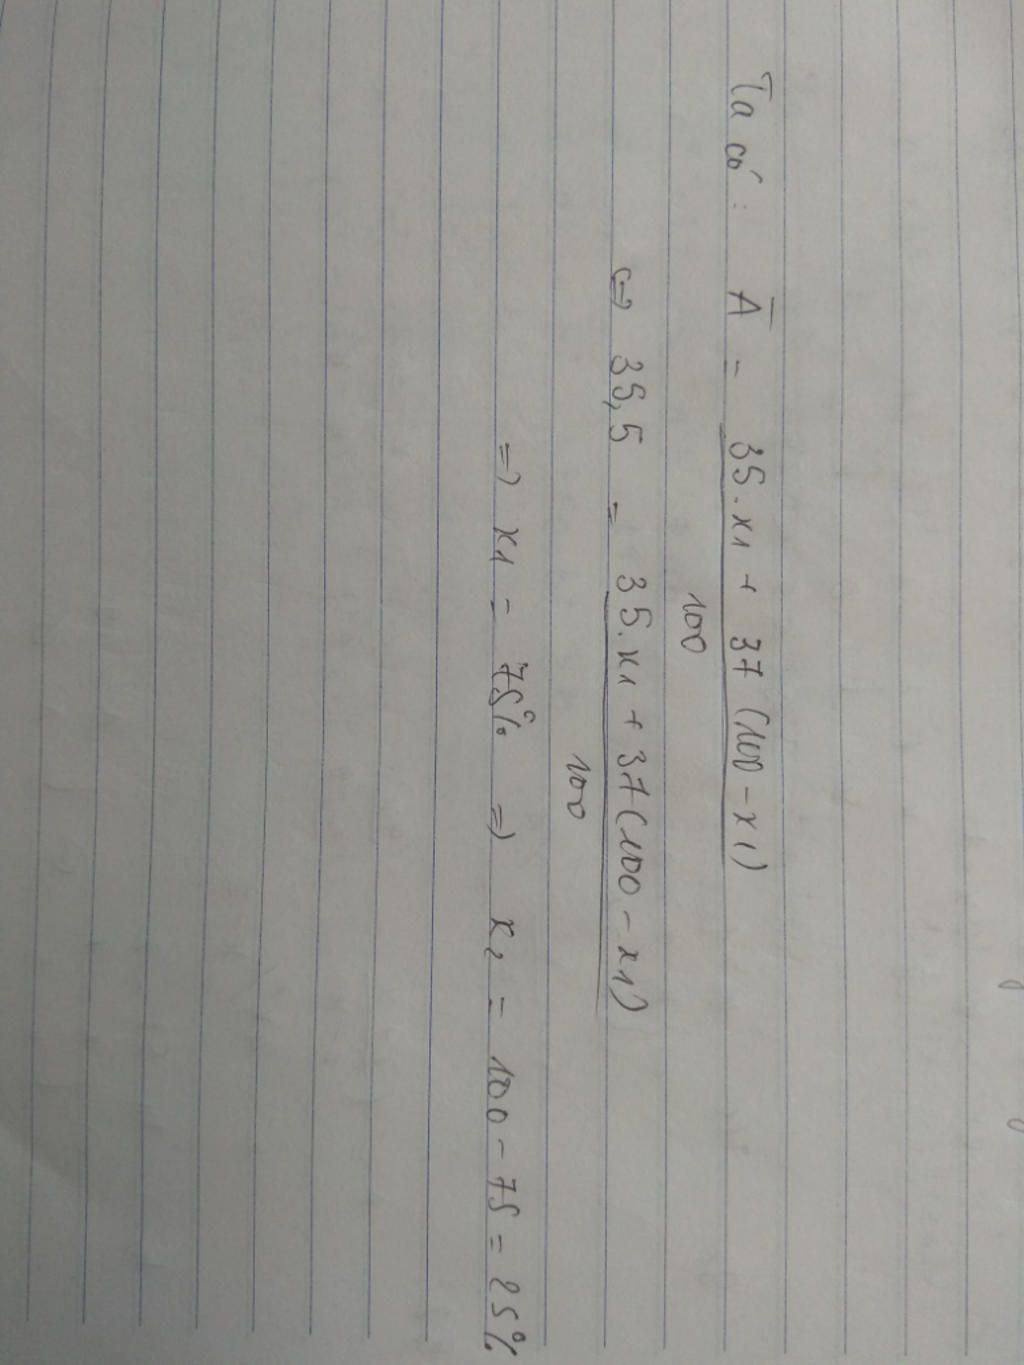 Ta có: A̅ = 35.x1 + 37(100 - x1)
100
<=> 35,5 = 35.x1 + 37(100 - x1)
100
=> x1 = 75% => x2 = 100 - 75 = 25%